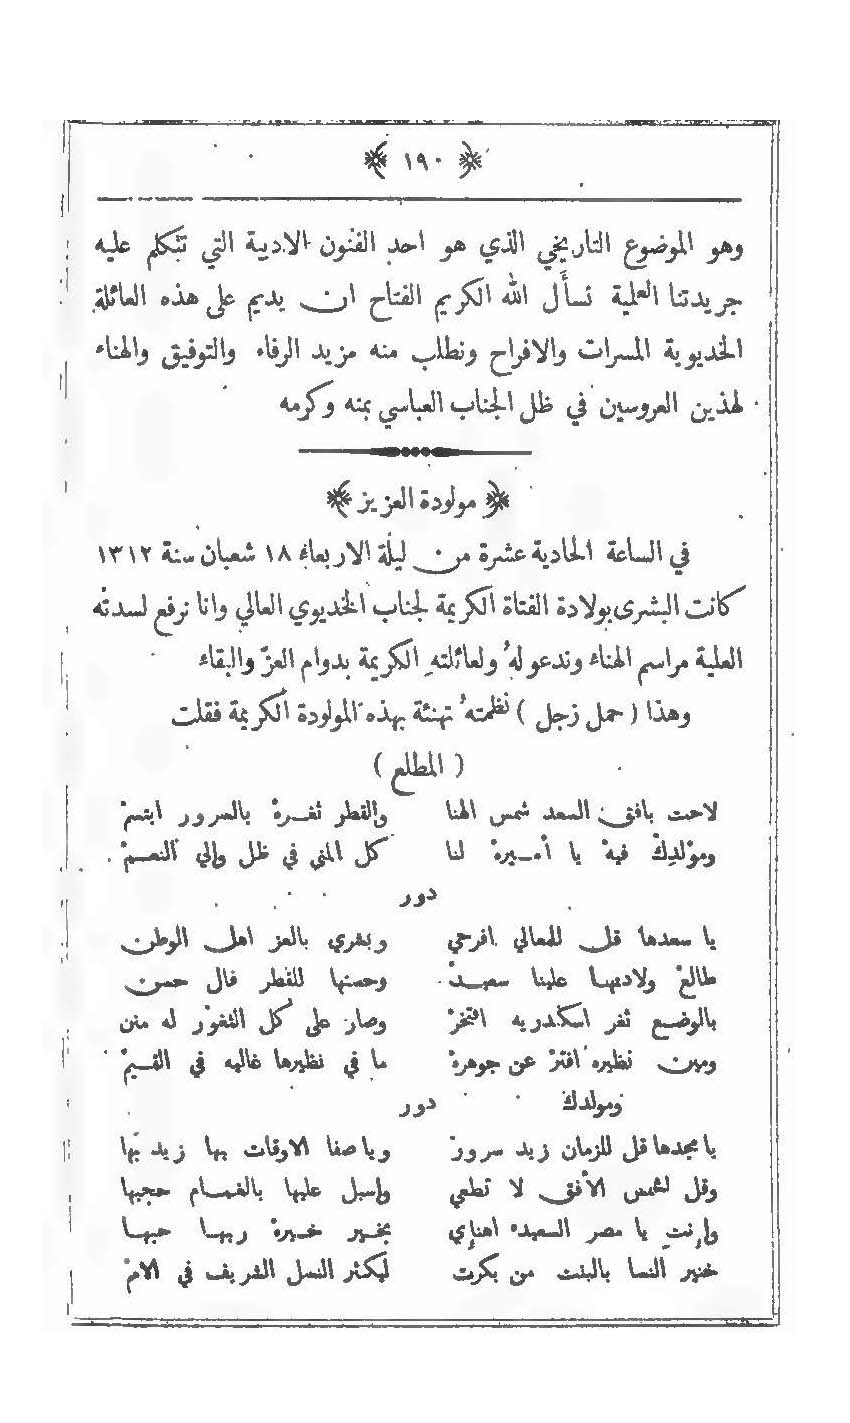 ﴿ ١٩٠ ﴾
وهو الموضوع التاريخي الذي هو احد الفنون الادبية التي تتكلم عليه
جريدتنا العلمية نسأل الله الكريم الفتاح ان يديم على هذه العائلة
الخديوية المسرات والافراح ونطلب منه مزيد الرفاء والتوفيق والهناء
لهذين العروسين في ظل الجناب العباسي بمنه وكرمه
﴿ مولودة العزيز ﴾
في الساعة الحادية عشرة من ليلة الاربعاء ١٨ شعبان سنة ١٣١٢
كانت البشرى بولادة الفتاة الكريمة لجناب الخديوي العالي وانا نرفع لسدته
العلية مراسم الهناء وندعو لهُ ولعائلتهِ الكريمة بدوام العزّ والبقاء
وهذا ( حمل زجل ) نظمتهُ تهنئة بهذه المولودة الكريمة فقلت
( المطلع )
لاحت بافق السعد شمس الهنا والقطر ثغرهْ بالسرور ابتسمْ
ومَوْلدِكْ فيهْ يا أميرهْ لنا كل المنى في ظل والي النعمْ
دور
يا سعدها قل للمعالي افرحي وبشري بالعز اهل الوطن
طالعْ ولادتها علينا سعيدْ وحسنها للقطر فال حسن
بالوضع ثغر اسكندريه افتخرْ وصار على كل الثغور له منن
ومين نظيره افترْ عن جوهرهْ ما في نظيرها غاليه في القيمْ
ومولدك دور
يا مجدها قل للزمان زيد سرورْ ويا صفا الاوقات بها زيد بها
وقل لشمس الأفق لا تطلعي واسبل عليها بالغمام حجبها
وإنتِ يا مصر السعيده اهنإي بخير خيرهْ ربها حبها
خير النسا بالبنت من بكرت ليكثر النسل الشريف في الامْ